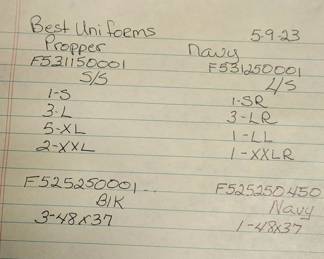 Best Uniforms 5-9-23
Propper Navy
F531150001 F531250001
S/S L/S
1-S 1-SR
3-L 3-LR
5-XL 1-LL
2-XXL 1-XXLR
F525250001.. F525250450
BlK Navy
3-48x37 1-48x37